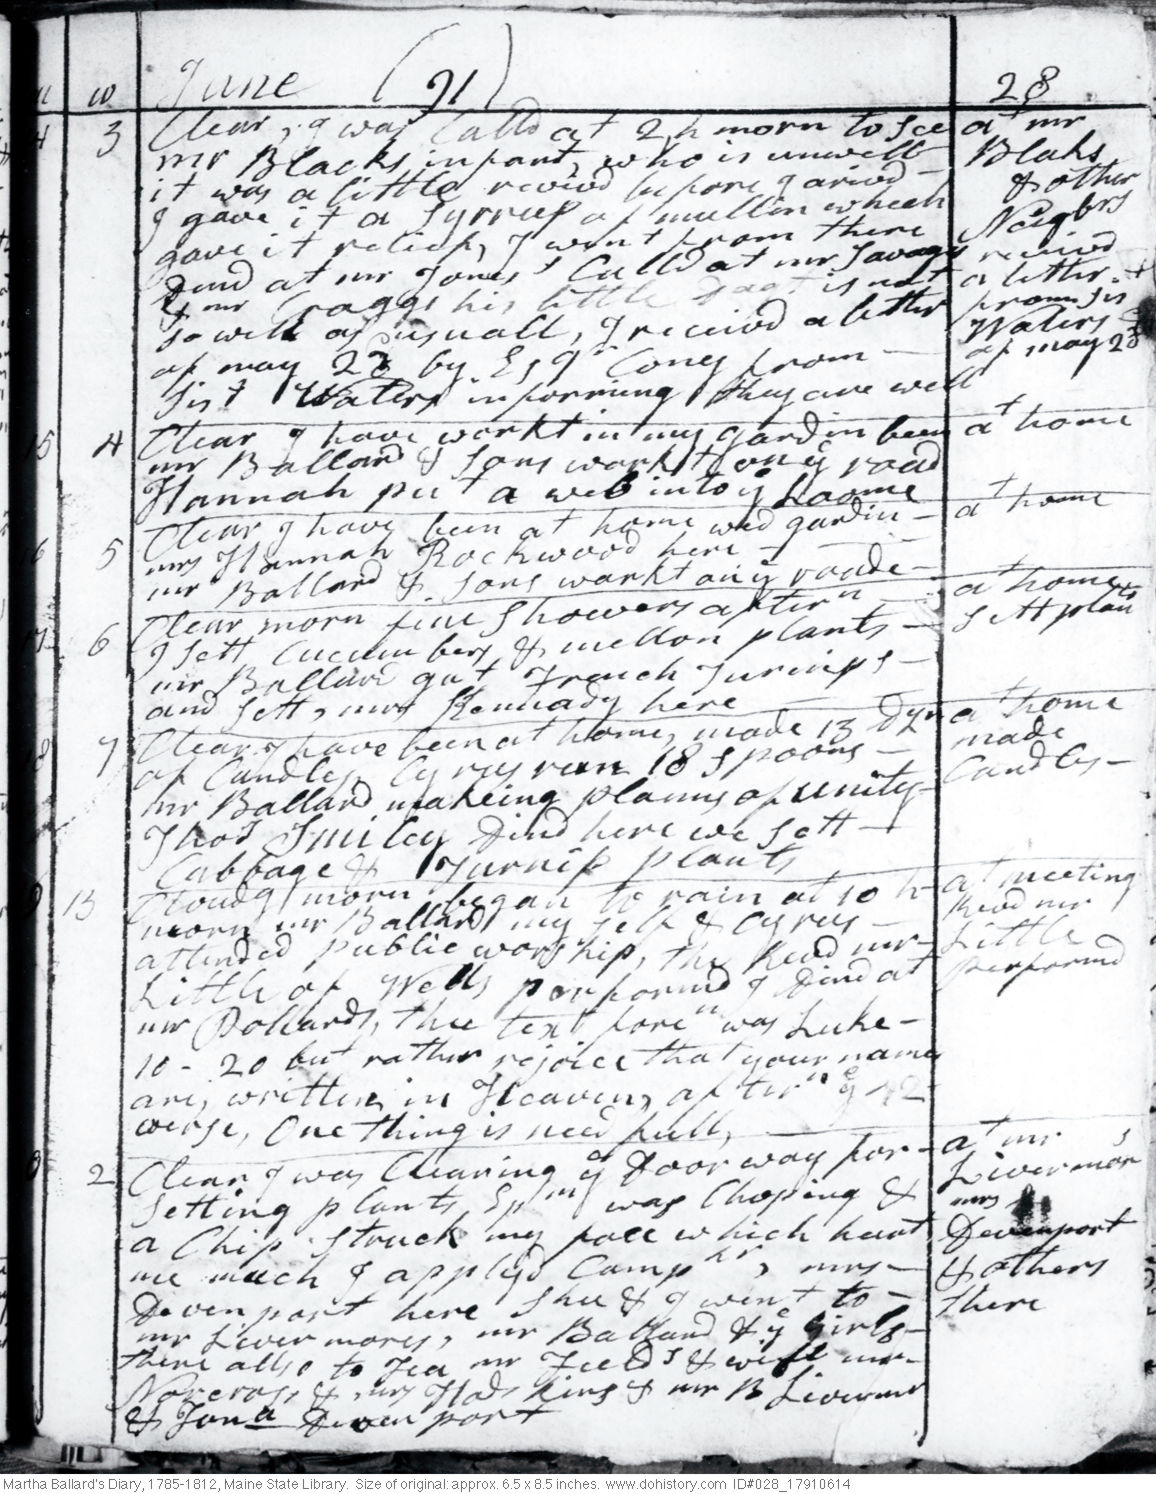 June (91) 28
14 3 Clear, I was Calld at 2 h morn to see
mr Blacks infant, who is unwell
it was a little revivd before I arivd
I gave it a Syrrup of mullin which
gave it relief, I went from there
Dind at mr Jones's Calld at mr Savages
& mr Craggs his little is not
so well as usuall, I receivd a letter
of may 23 by Esqr Cony from
Sist Waters informing they are well
at mr
Blaks
& other
Neigbrs
receivd
a letter
from Sis
Waters
of may 23
15 4 Clear I have workt in my gardin been
mr Ballard & Sons workt on ye road
Hannah put a web into ye Loome
at home
16 5 Clear I have been at home wed gardin
mrs Hannah Rockwood here
mr Ballard & Sons workt on ye roade
at home
17 6 Clear morn fine Showers aftern
I Sett Cucumbers & mellon plants
mr Ballard gat French Turnips
and Sett, mrs Kennady here
at home
Sett plants
18 7 Clear I have been at home, made 13 Dzn
of Candles, Cyrus run 18 spoons
mr Ballard makeing planns of unity
Thos Smiley Dind here we Sett
Cabbage & Turnip plants
at home
made
Candles
9 13 Cloudy morn began to rain at 10 h
morn mr Ballard my self & Cyrus
attended public worship, the Revd mr
Little of Wells performd I Dind at
mr Pollards, thee text foren was Luke
10 - 20 but rather rejoice that your names
are, written, in Heaven, aftern ye 42
verse, One thing is needfull,
at meeting
Revd mr
Little
performd
0 2 Clear I was Clearing ye Door way for
Setting plants, Epm was Choping &
a Chip Struck my face which heart
me much I applyd Camphr, mrs
Devenport here Shee & I went to
mr Livermores, mr Ballard & ye girls
there allso to Tea mr Fields & wife mr
Norcross & mrs Hodskins & mr B Livermor
& Jona Devenport
at mr
Livermors
mrs
Devenport
& others
there
Martha Ballard's Diary, 1785-1812, Maine State Library. Size of original: approx. 6.5 x 8.5 inches. www.dohistory.com ID#028_17910614